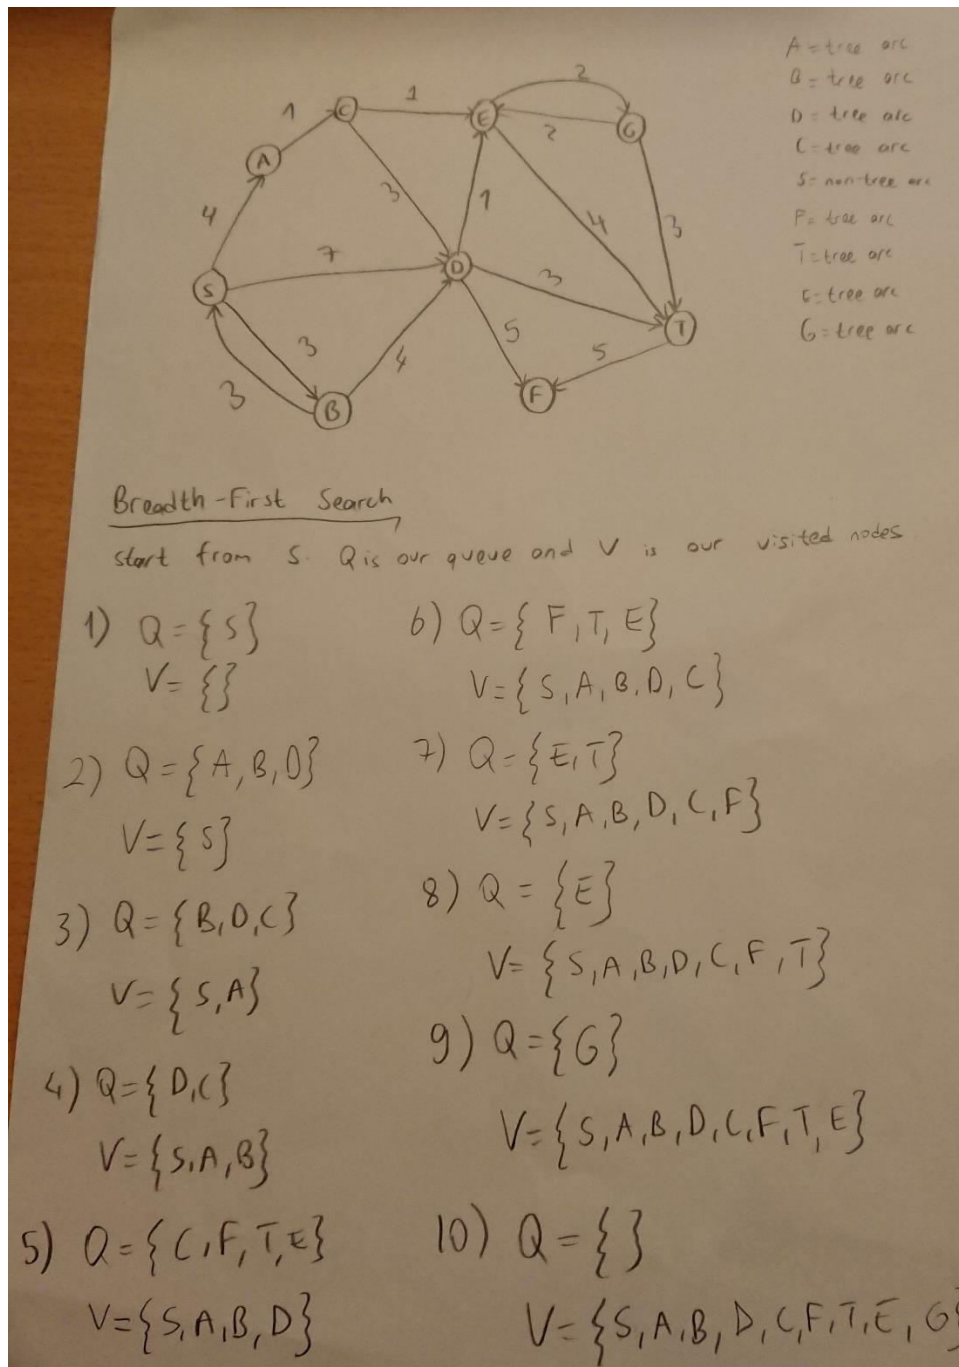 A = tree arc
B = tree arc
D = tree arc
C = tree arc
S = non-tree arc
F = tree arc
T = tree arc
E = tree arc
G = tree arc
2
1
C
E
1
2
G
A
3
1
4
3
4
7
D
3
S
T
3
5
5
4
3
B
F
Breadth-First Search
start from S. Q is our queue and V is our visited nodes
1) Q = { S }
V = { }
2) Q = { A, B, D }
V = { S }
3) Q = { B, D, C }
V = { S, A }
4) Q = { D, C }
V = { S, A, B }
5) Q = { C, F, T, E }
V = { S, A, B, D }
6) Q = { F, T, E }
V = { S, A, B, D, C }
7) Q = { E, T }
V = { S, A, B, D, C, F }
8) Q = { E }
V = { S, A, B, D, C, F, T }
9) Q = { G }
V = { S, A, B, D, C, F, T, E }
10) Q = { }
V = { S, A, B, D, C, F, T, E, G }